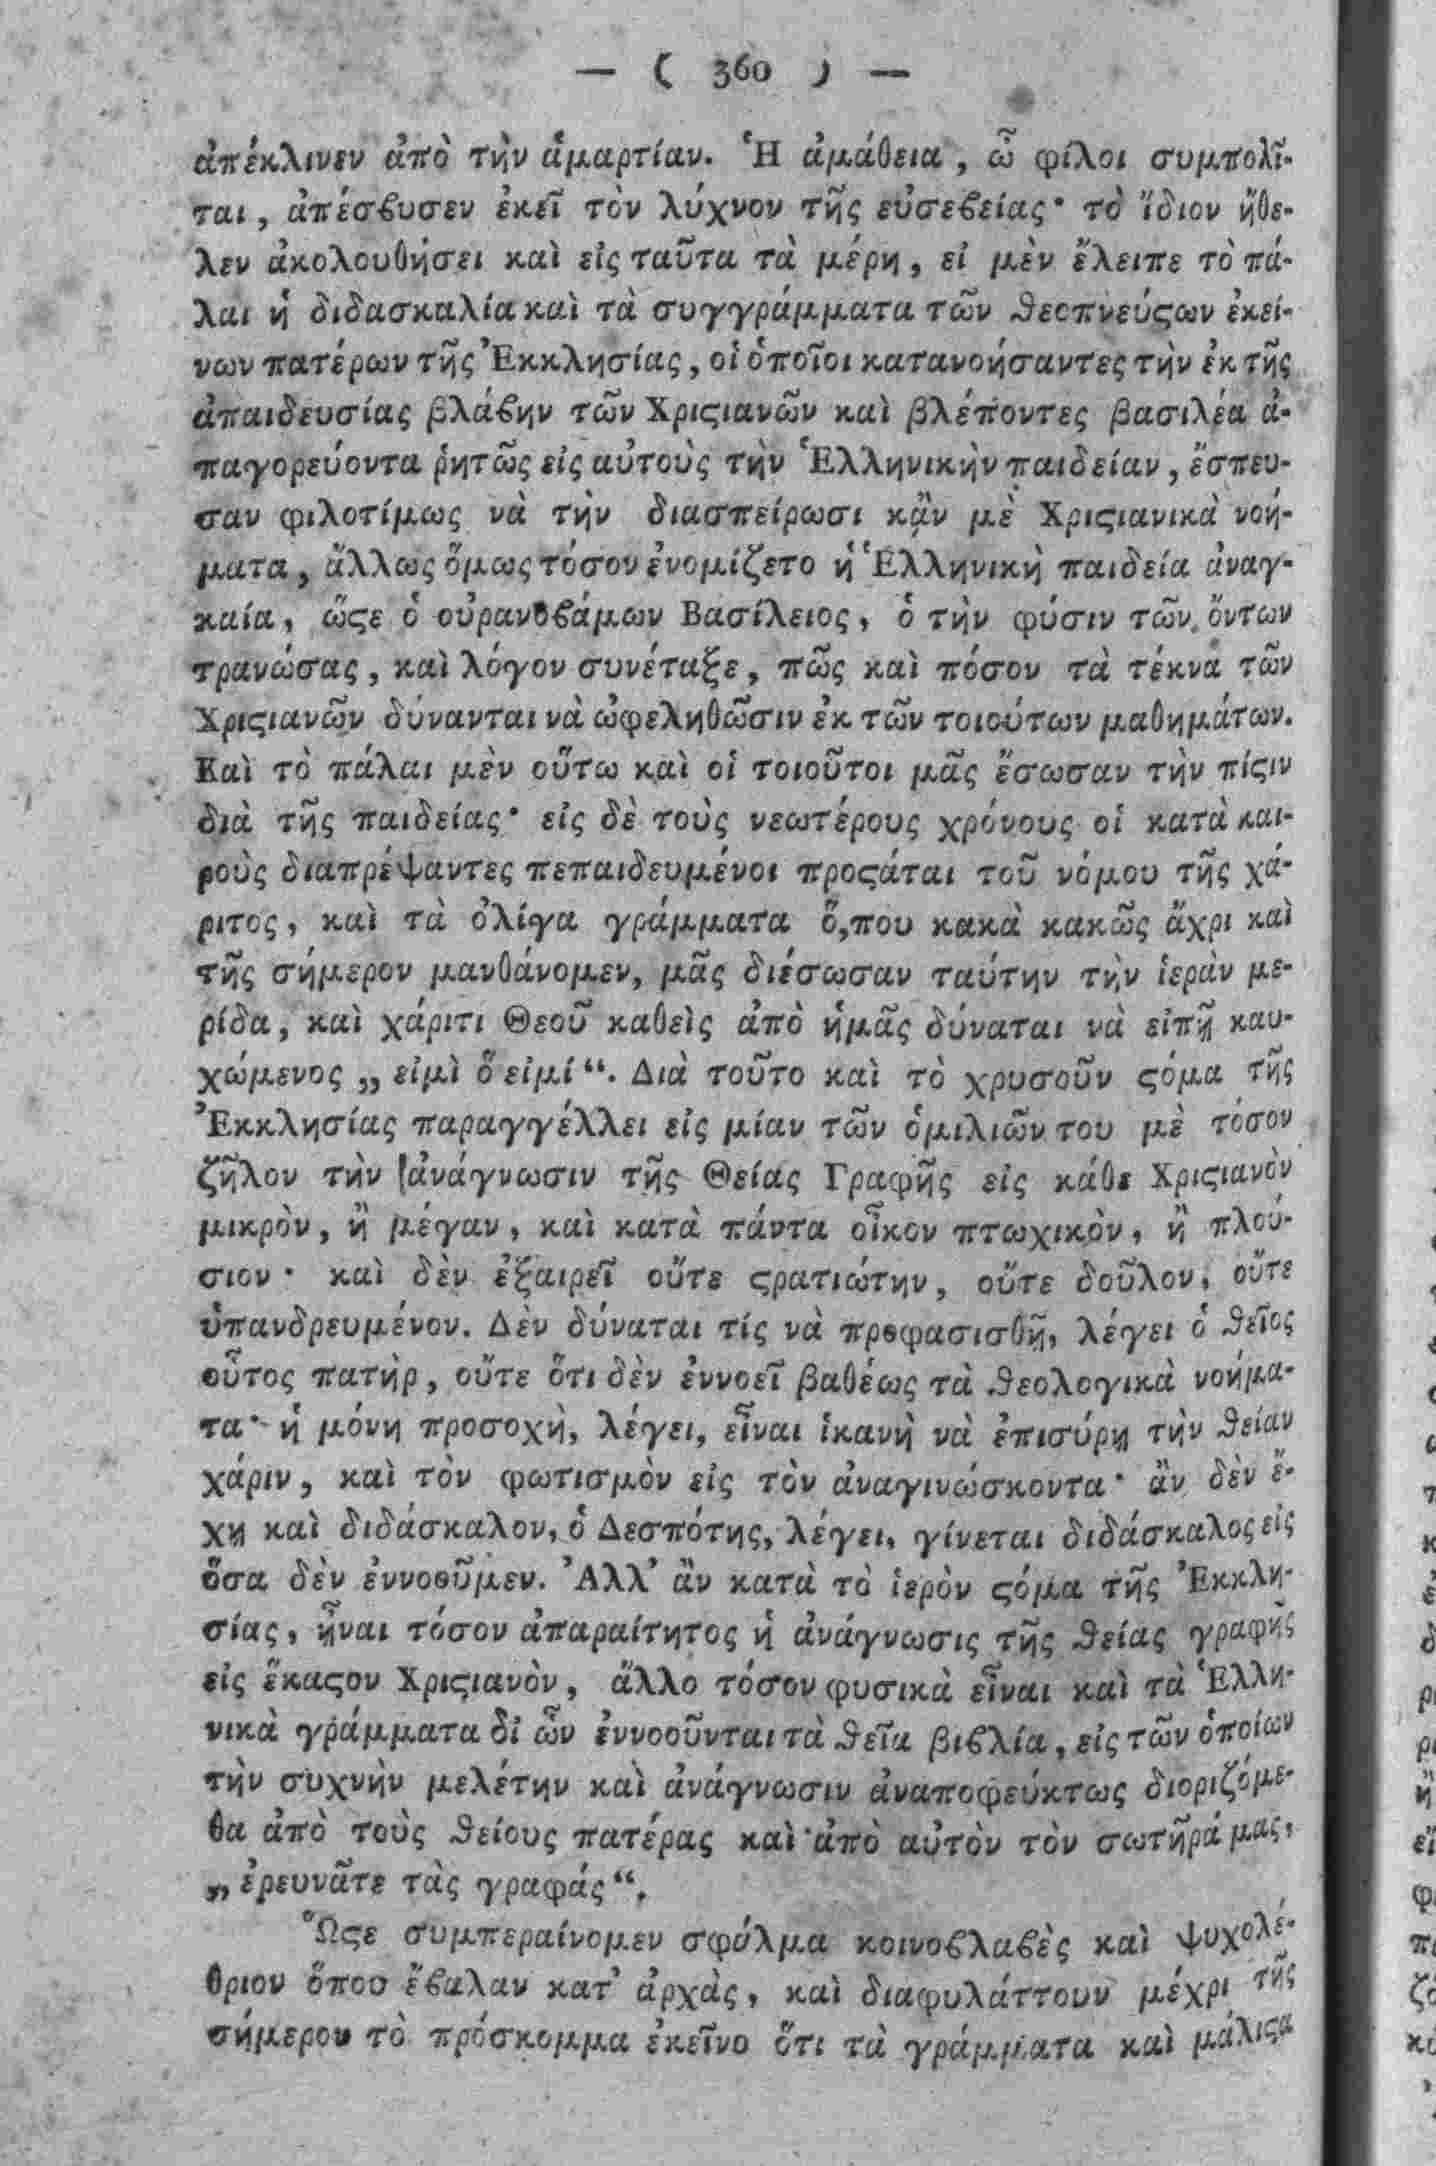 — ( 360 ) —
ἀπέκλινεν ἀπὸ τὴν ἁμαρτίαν. Ἡ ἀμάθεια, ὦ φίλοι συμπολῖ-
ται, ἀπέσϐυσεν ἐκεῖ τὸν λύχνον τῆς εὐσεϐείας· τὸ ἴδιον ἤθε-
λεν ἀκολουθήσει καὶ εἰς ταῦτα τὰ μέρη, εἰ μὲν ἔλειπε τὸ πά-
λαι ἡ διδασκαλία καὶ τὰ συγγράμματα τῶν ϑεοπνεύϛων ἐκεί-
νων πατέρων τῆς Ἐκκλησίας, οἱ ὁποῖοι κατανοήσαντες τὴν ἐκ τῆς
ἀπαιδευσίας βλάϐην τῶν Χριϛιανῶν καὶ βλέποντες βασιλέα ἀ-
παγορεύοντα ῥητῶς εἰς αὐτοὺς τὴν Ἑλληνικὴν παιδείαν, ἔσπευ-
σαν φιλοτίμως νὰ τὴν διασπείρωσι κᾂν μὲ Χριϛιανικὰ νοή-
ματα, ἄλλως ὅμως τόσον ἐνομίζετο ἡ Ἑλληνικὴ παιδεία ἀναγ-
καία, ὥϛε ὁ οὐρανοϐάμων Βασίλειος, ὁ τὴν φύσιν τῶν ὄντων
τρανώσας, καὶ λόγον συνέταξε, πῶς καὶ πόσον τὰ τέκνα τῶν
Χριϛιανῶν δύνανται νὰ ὠφεληθῶσιν ἐκ τῶν τοιούτων μαθημάτων.
Καὶ τὸ πάλαι μὲν οὕτω καὶ οἱ τοιοῦτοι μᾶς ἔσωσαν τὴν πίϛιν
διὰ τῆς παιδείας· εἰς δὲ τοὺς νεωτέρους χρόνους οἱ κατὰ και-
ροὺς διαπρέψαντες πεπαιδευμένοι προϛάται τοῦ νόμου τῆς χά-
ριτος, καὶ τὰ ὀλίγα γράμματα ὅ,που κακὰ κακῶς ἄχρι καὶ
τῆς σήμερον μανθάνομεν, μᾶς διέσωσαν ταύτην τὴν ἱερὰν με-
ρίδα, καὶ χάριτι Θεοῦ καθεὶς ἀπὸ ἡμᾶς δύναται νὰ εἰπῇ καυ-
χώμενος „ εἰμὶ ὅ εἰμί“. Διὰ τοῦτο καὶ τὸ χρυσοῦν ϛόμα τῆς
Ἐκκλησίας παραγγέλλει εἰς μίαν τῶν ὁμιλιῶν του μὲ τόσον
ζῆλον τὴν ἀνάγνωσιν τῆς Θείας Γραφῆς εἰς κάθε Χριϛιανὸν
μικρὸν, ἢ μέγαν, καὶ κατὰ πάντα οἶκον πτωχικὸν, ἢ πλού-
σιον· καὶ δὲν ἐξαιρεῖ οὔτε ϛρατιώτην, οὔτε δοῦλον, οὔτε
ὑπανδρευμένον. Δὲν δύναται τίς νὰ προφασισθῇ, λέγει ὁ ϑεῖος
οὗτος πατὴρ, οὔτε ὅτι δὲν ἐννοεῖ βαθέως τὰ ϑεολογικὰ νοήμα-
τα· ἡ μόνη προσοχὴ, λέγει, εἶναι ἱκανὴ νὰ ἐπισύρῃ τὴν ϑείαν
χάριν, καὶ τὸν φωτισμὸν εἰς τὸν ἀναγινώσκοντα· ἂν δὲν ἔ-
χῃ καὶ διδάσκαλον, ὁ Δεσπότης, λέγει, γίνεται διδάσκαλος εἰς
ὅσα δὲν ἐννοοῦμεν. Ἀλλ’ ἂν κατὰ τὸ ἱερὸν ϛόμα τῆς Ἐκκλη-
σίας, ἦναι τόσον ἀπαραίτητος ἡ ἀνάγνωσις τῆς ϑείας γραφῆς
εἰς ἕκαϛον Χριϛιανὸν, ἄλλο τόσον φυσικὰ εἶναι καὶ τὰ Ἑλλη-
νικὰ γράμματα δἰ ὧν ἐννοοῦνται τὰ ϑεῖα βιϐλία, εἰς τῶν ὁποίων
τὴν συχνὴν μελέτην καὶ ἀνάγνωσιν ἀναποφεύκτως διοριζόμε-
θα ἀπὸ τοὺς ϑείους πατέρας καὶ ἀπὸ αὐτὸν τὸν σωτῆρά μας,
„ ἐρευνᾶτε τὰς γραφάς“.
Ὥϛε συμπεραίνομεν σφάλμα κοινοϐλαϐὲς καὶ ψυχολέ-
θριον ὅπου ἔϐαλαν κατ’ ἀρχὰς, καὶ διαφυλάττουν μέχρι τῆς
σήμερον τὸ πρόσκομμα ἐκεῖνο ὅτι τὰ γράμματα καὶ μάλιϛα